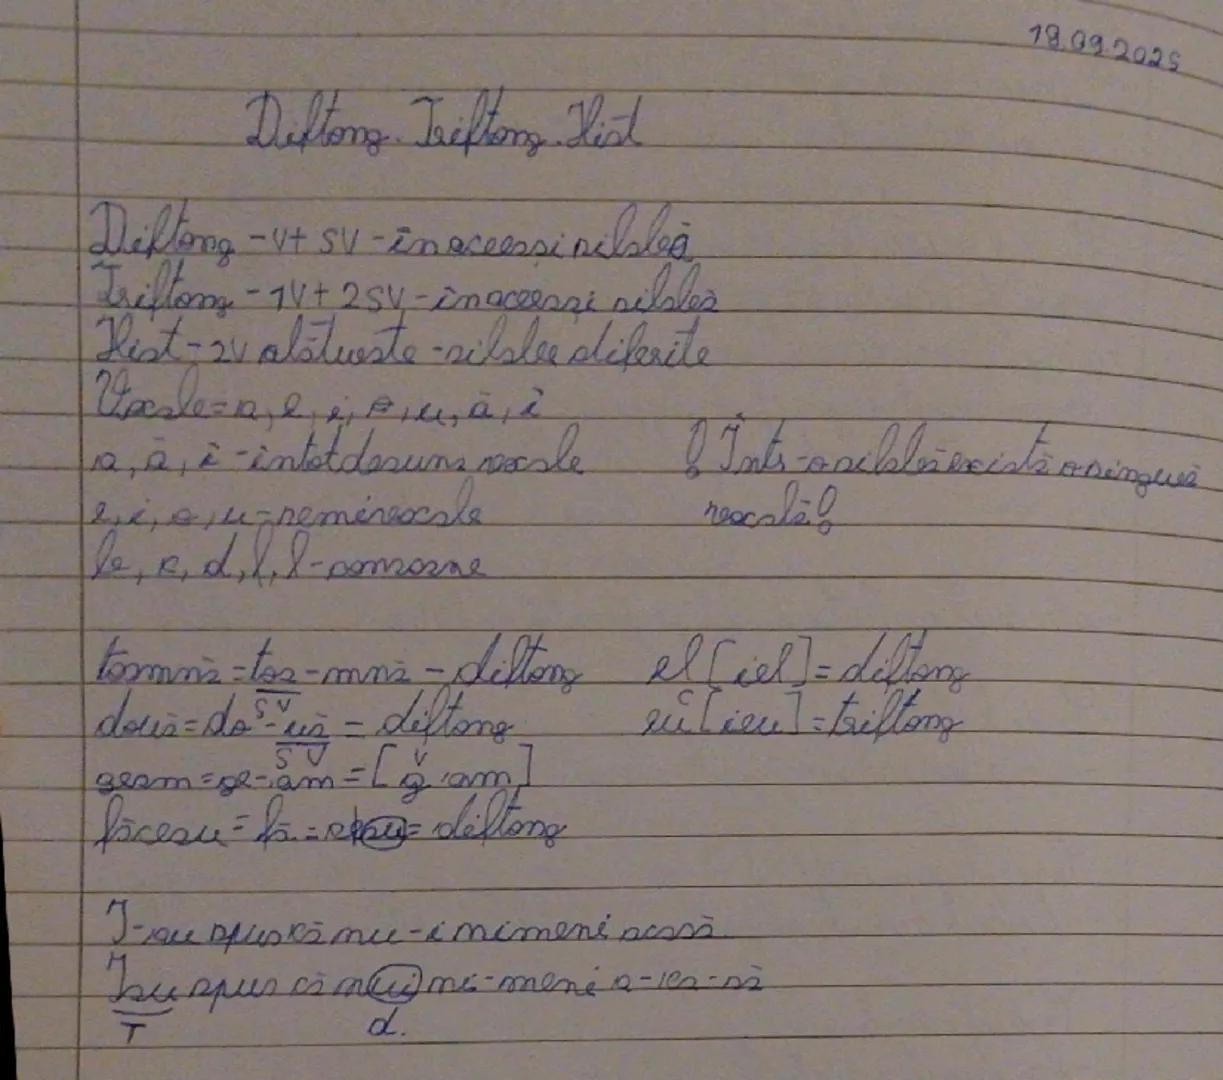 18.09.2025
Diftong. Triftong. Hiat
Diftong - V + SV - în aceeași silabă
Triftong - 1V + 2SV - în aceeași silabă
Hiat - 2V alăturate - silabe diferite
Vocale = a, e, i, o, u, ă, î
a, ă, î - întotdeauna vocale
! Într-o silabă există o singură
e, i, o, u - semivocale
vocală!
b, c, d, f, l - consoane
toamnă = toa - mnă - diftong
el [iel] = diftong
S V
două = do - uă = diftong
eu [ieu] = triftong
S V
geam = ge - am = [ğ am]
făceau = fă = ceau = diftong
I-au spus că nu-i nimeni acasă
Iau spus că nui ni-meni a-ca-să
T
d.